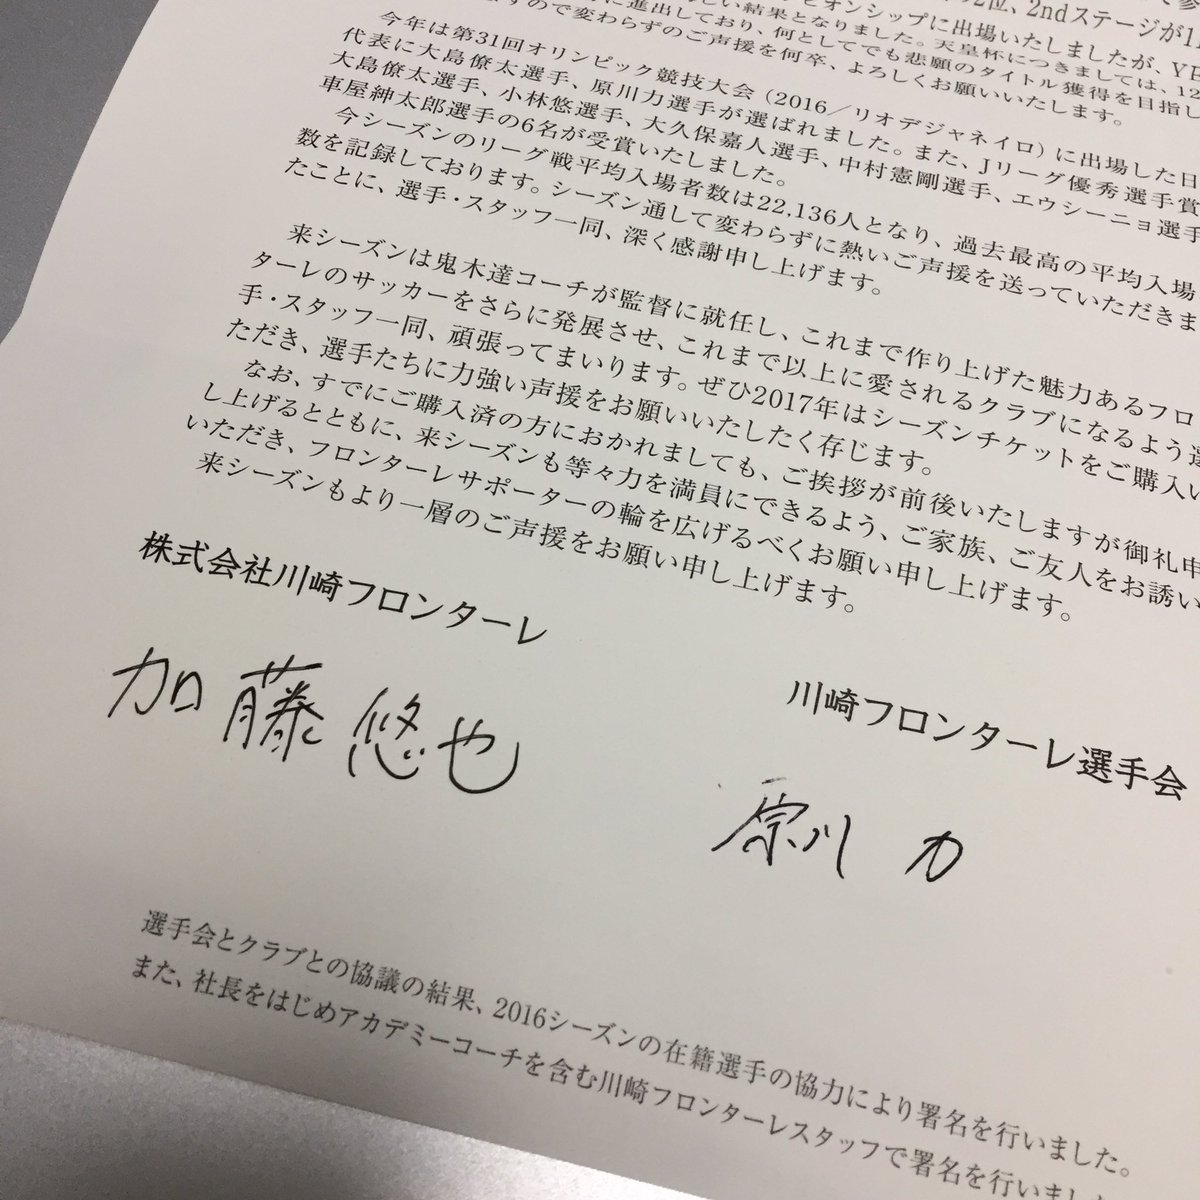 て参
の2位、2ndステージが1
ピオンシップに出場いたしましたが、YB
しい結果となりました。天皇杯につきましては、12
に進出しており、何としてでも悲願のタイトル獲得を目指し
ますので変わらずのご声援を何卒、よろしくお願いいたします。
今年は第31回オリンピック競技大会（2016／リオデジャネイロ）に出場した日
代表に大島僚太選手、原川力選手が選ばれました。また、Jリーグ優秀選手賞
大島僚太選手、小林悠選手、大久保嘉人選手、中村憲剛選手、エウシーニョ選手
車屋紳太郎選手の6名が受賞いたしました。
今シーズンのリーグ戦平均入場者数は22,136人となり、過去最高の平均入場
数を記録しております。シーズン通して変わらずに熱いご声援を送っていただきま
たことに、選手・スタッフ一同、深く感謝申し上げます。
来シーズンは鬼木達コーチが監督に就任し、これまで作り上げた魅力あるフロ
ターレのサッカーをさらに発展させ、これまで以上に愛されるクラブになるよう選
手・スタッフ一同、頑張ってまいります。ぜひ2017年はシーズンチケットをご購入い
ただき、選手たちに力強い声援をお願いいたしたく存じます。
なお、すでにご購入済の方におかれましても、ご挨拶が前後いたしますが御礼申
し上げるとともに、来シーズンも等々力を満員にできるよう、ご家族、ご友人をお誘い
いただき、フロンターレサポーターの輪を広げるべくお願い申し上げます。
来シーズンもより一層のご声援をお願い申し上げます。
株式会社川崎フロンターレ
加藤悠也
川崎フロンターレ選手会
原川 力
選手会とクラブとの協議の結果、2016シーズンの在籍選手の協力により署名を行いました。
また、社長をはじめアカデミーコーチを含む川崎フロンターレスタッフで署名を行いまし